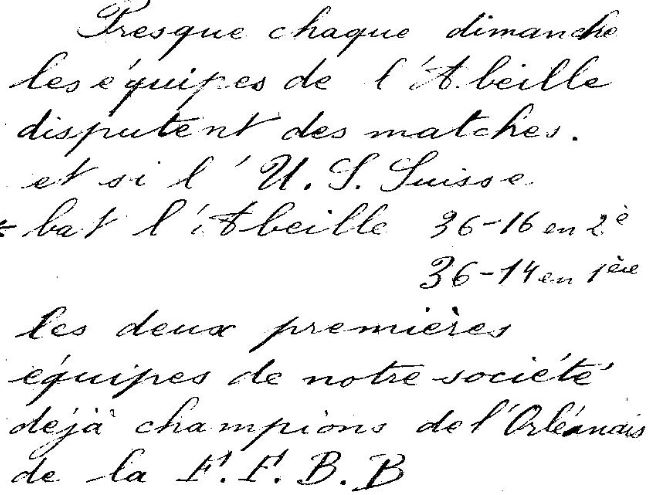 Presque chaque dimanche
les équipes de l'Abeille
disputent des matches.
et si l'U.S. Suisse
* bat l'Abeille 36-16 en 2è
36-14 en 1ère
les deux premières
équipes de notre société
déjà champions de l'Orléanais
de la F.F.B.B